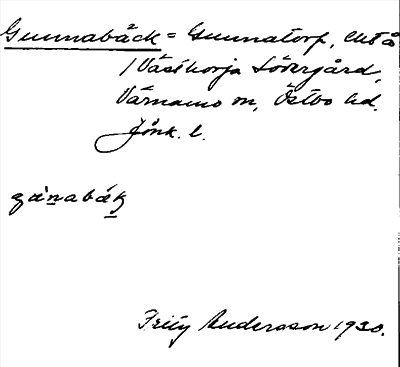 Gunnabäck = Gunnatorp,
i Västhorja Södergård,
Värnamo sn, Östbo hd.
Jönk. l.
Fritz Andersson 1930.